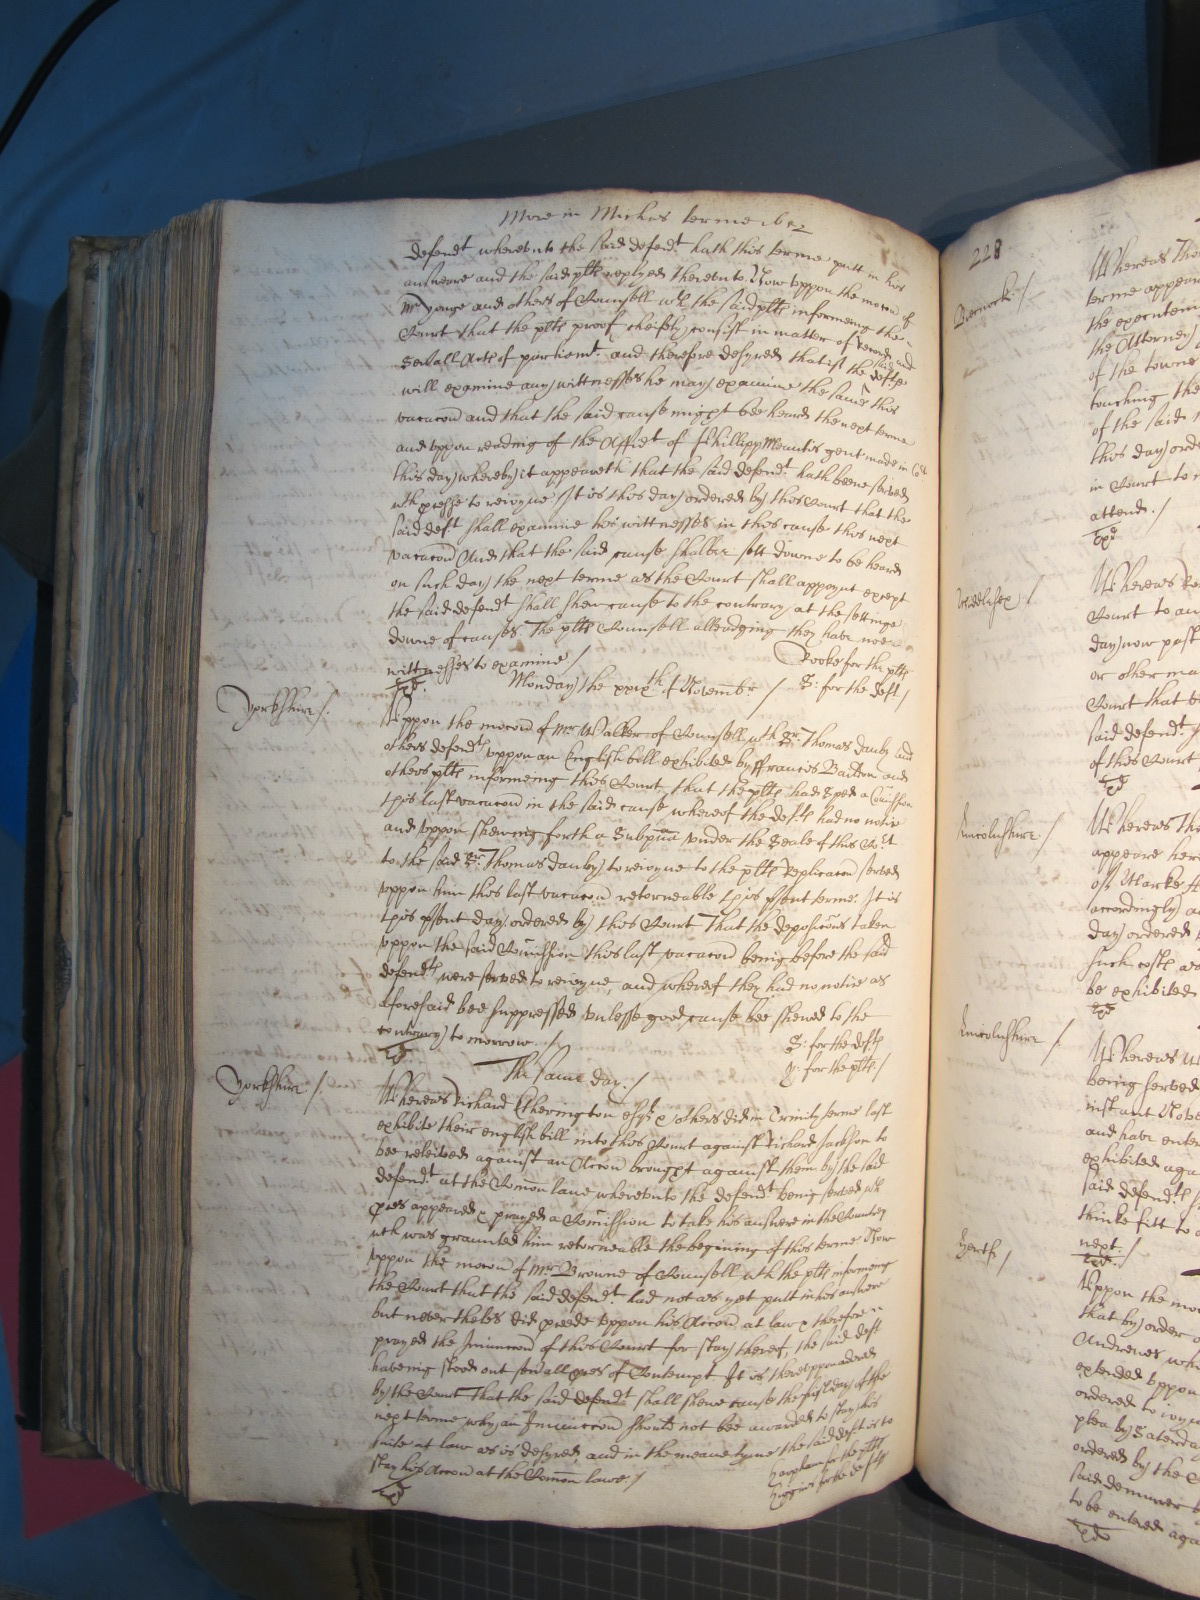 More in Michas terme 1612
defendt whereunto the said defendt hath this terme putt in his
answeare and the said plts replyed thereunto. Now uppon the mocon of
Mr Yonge and others of Counsell wth the said plts informeing the
Court that the plts proof cheifely consist in matter of Records and
sevall Acts of parliemt. and therefore desyred that if the said deft
will examine any wittnesses he may examine the same this
vacacon and that the said cause might bee heard the next terme
and uppon reading of the Affidt of Phillipp Meautis gent made in Cort
this day whereby it appeareth that the said defendt. hath beene served
wth presse to reioyne It is this day ordered by this Court that the
said deft shall examine his wittnesses in this cause this next
vacacon And that the said cause shalbee sett downe to be heard
on such day the next terme as the Court shall appoynt except
the said defendt shall shew cause to the contrary at the settinge
downe of causes The plts Counsell alleadging they have noe
wittnesses to examine /
Rooke for the plts
S: for the deft /
Exd.
Monday the xxixth of Novembr /
Yorkshire /.
Uppon the mocon of Mr Walker of Counsell wth Sr. Thomas Danby and
others defendts uppon an English bill exhibited by ffrancis Barton and
others plts informeing this Court, that the plts had sped a Comission
this last vacacon in the said cause whereof the defts had no notice
and uppon shewing forth a Subpena under the Seale of this Cort
to the said Sr. Thomas Danby to reioyne to the plts Replicacon served
uppon him this last vacacon retorneable this psent terme: It is
this psent day ordered by this Court That the deposicons taken
uppon the said Comission this last vacacon being before the said
defendts were served to reioyne, and whereof they had no notice as
aforesaid bee suppressed unlesse good cause bee shewed to the
contrary to morrow. /
S: for the defts
Y: for the plts /
Exd
The same day. /
Yorkshire /.
Whereas Richard Etherington esqr & others did in Trinity terme last
exhibite their english bill into this Court against Richard Jackson to
bee releived against an Accon brought against them by the said
defendt. at the Comon lawe whereunto the defendt being served wth
pces appeared & prayed a Comission to take his answere in the Countrey
wch was graunted him retorneable the begining of this terme Now
uppon the mocon of Mr Browne of Counsell wth the plts informeing
the Court that the said defendt. had not as yet putt in his answere
but nevertheles did pceede uppon his Accon at law & therefore
prayed the Iniunccon of this Court for stay thereof, the said deft
haveing stood out sevall pces of Contempt It is thereuppon ordered
by the Court That the said defendt shall shewe cause the first day of the
next terme why an Iniunccon should not bee awarded to stay his
suite at law as is desyred, and in the meane tyme the said deft is to
stay his Accon at the Comon lawe. /
Exd
228
Berwick /.
Whereas
terme appear
the executon
the Attorney
of the towne
touching the
of the said
this day orde
in Court to
attend. /
Exd
Middlesex /
Whereas
Court to an
day now past
or other ma
Court that
said defendt.
of this Court
Exd
Lincolnshire /
Whereas
appeare here
accordingly
day ordered
such costs as
be exhibited
Exd
Lincolnshire /.
Whereas
being served
instant Nove
and have ente
exhibited aga
said defendts
thinke fitt to
next. /
Exd.
Uppon the mo
that by order
Andrewes wh
extended uppon
ordered to ioyn
plea by Saterda
ordered by the
said demurrer
to be entered aga
Exd